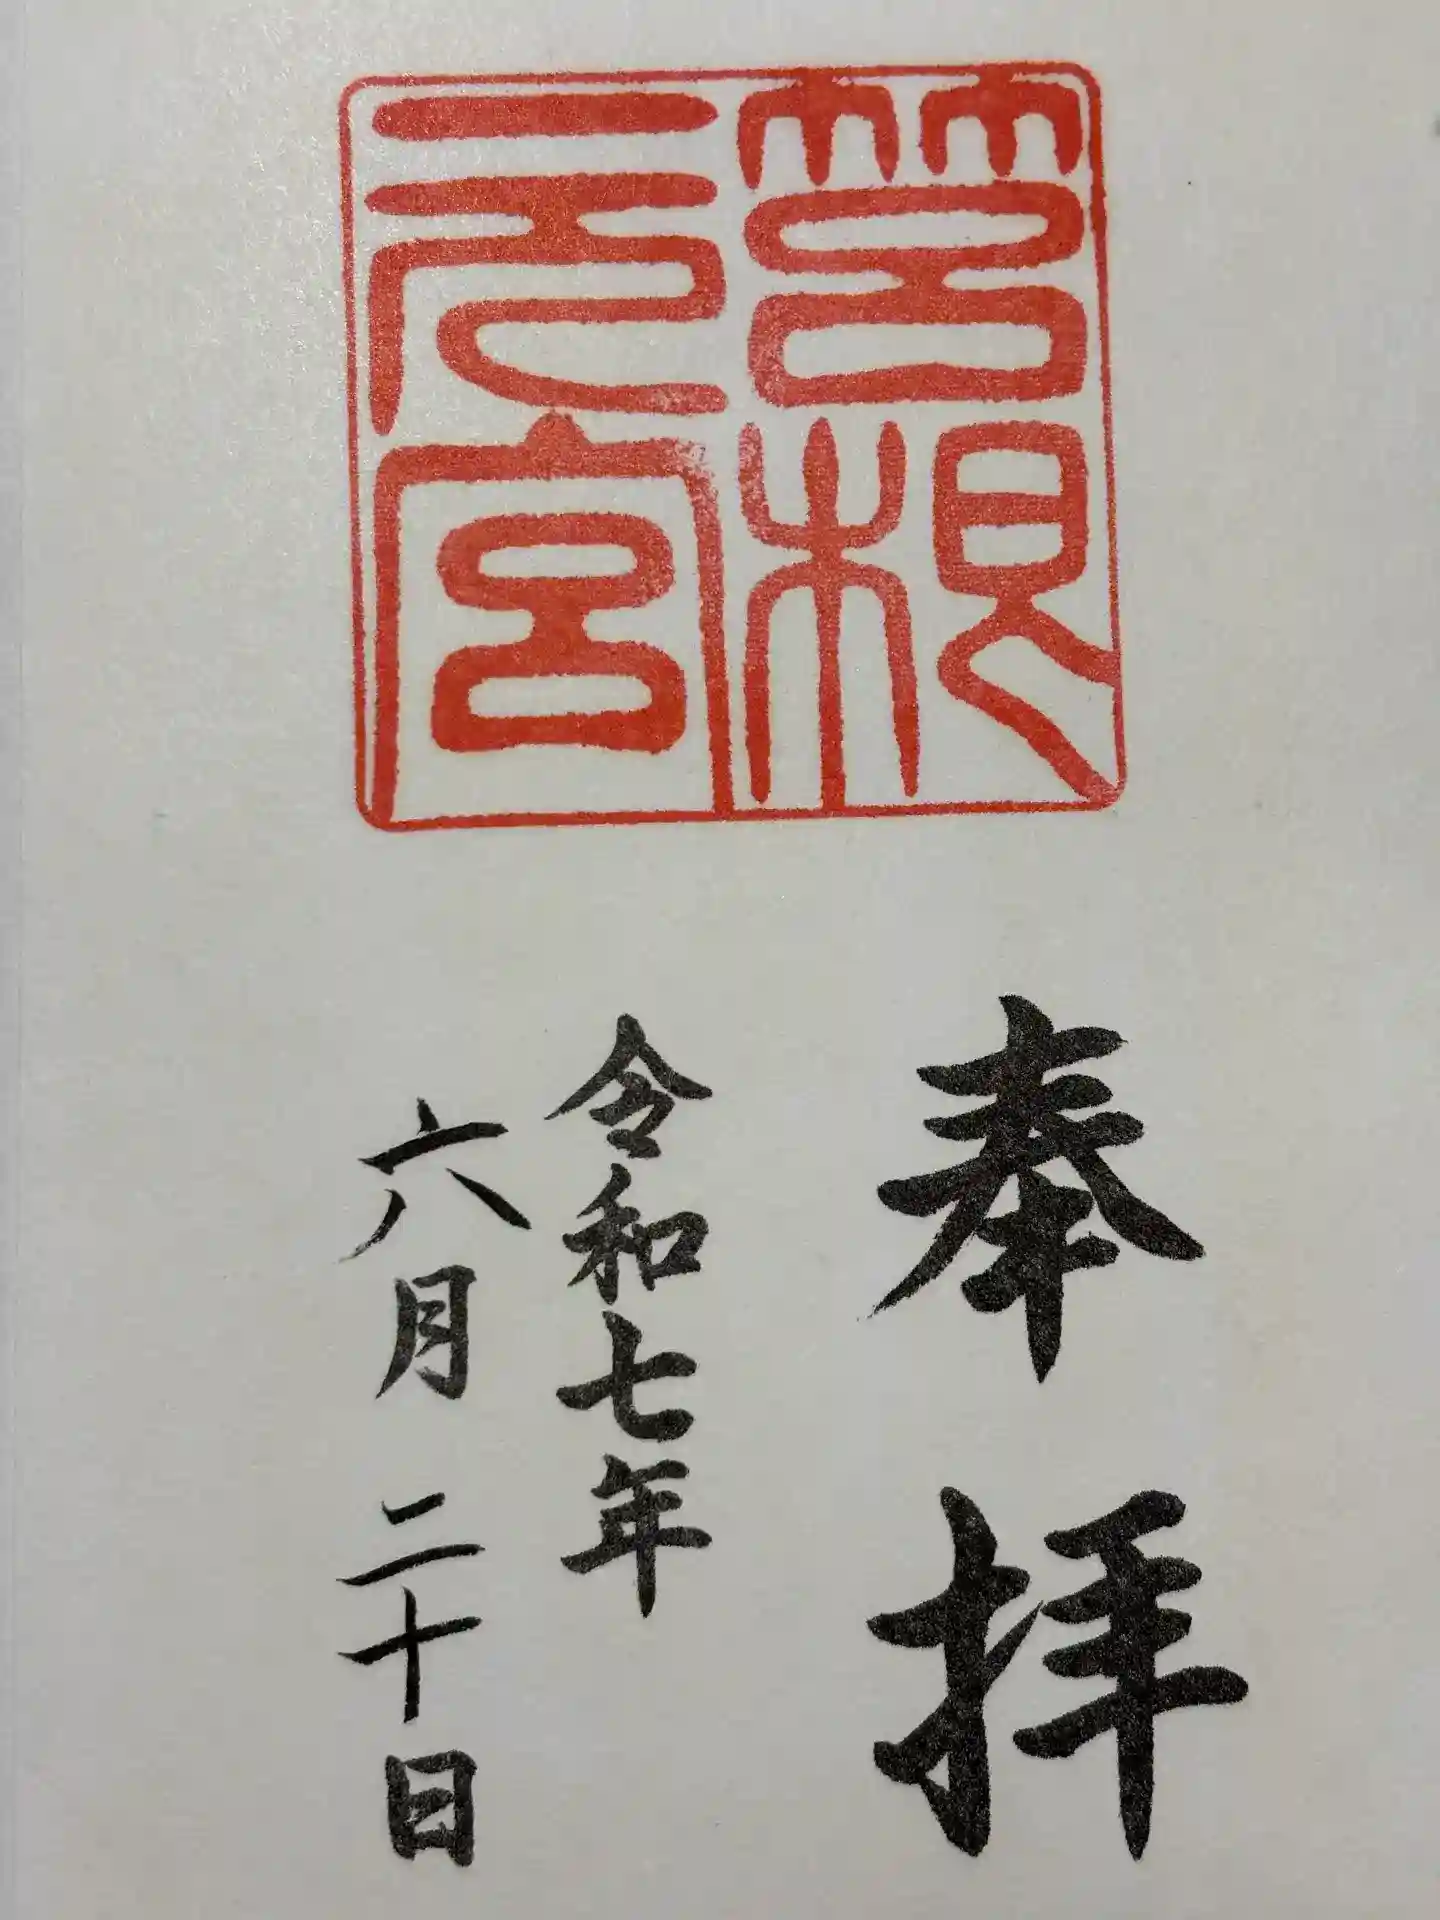 筥根
元宮
奉拝
令和七年
六月二十日